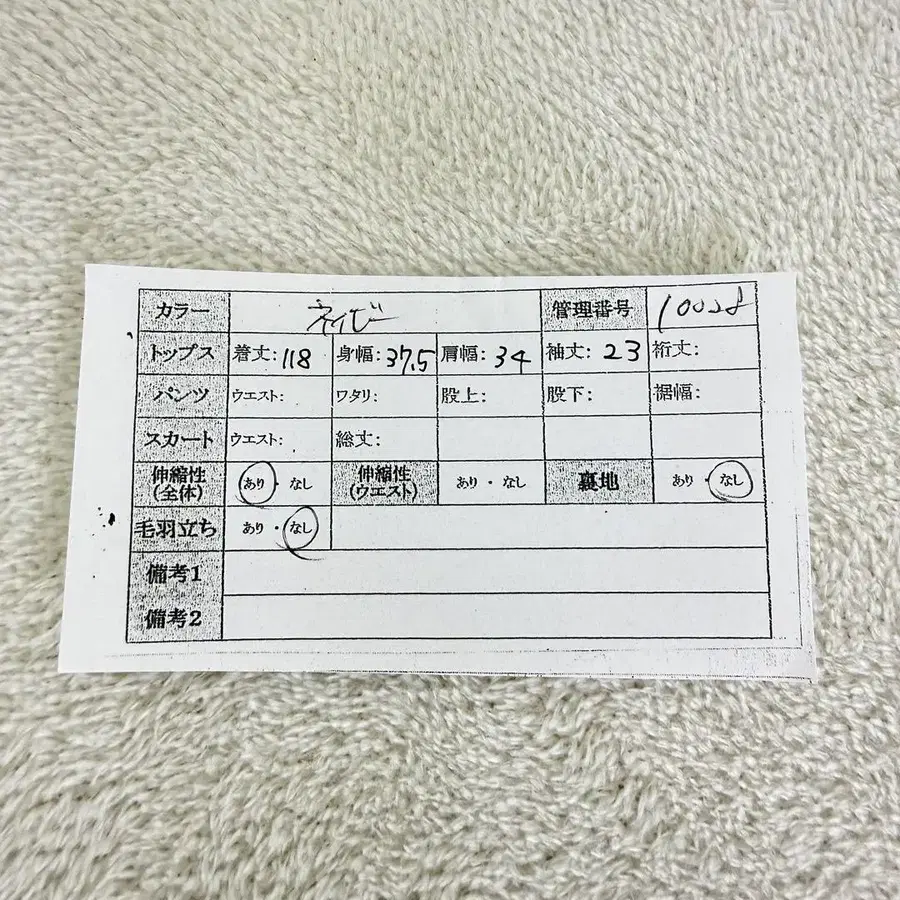 カラー ネイビー 管理番号 10028
トップス 着丈: 118 身幅: 37.5 肩幅: 34 袖丈: 23 裄丈:
パンツ ウエスト: ワタリ: 股上: 股下: 裾幅:
スカート ウエスト: 総丈:
伸縮性(全体) あり・なし 伸縮性(ウエスト) あり・なし 裏地 あり・なし
毛羽立ち あり・なし
備考1
備考2